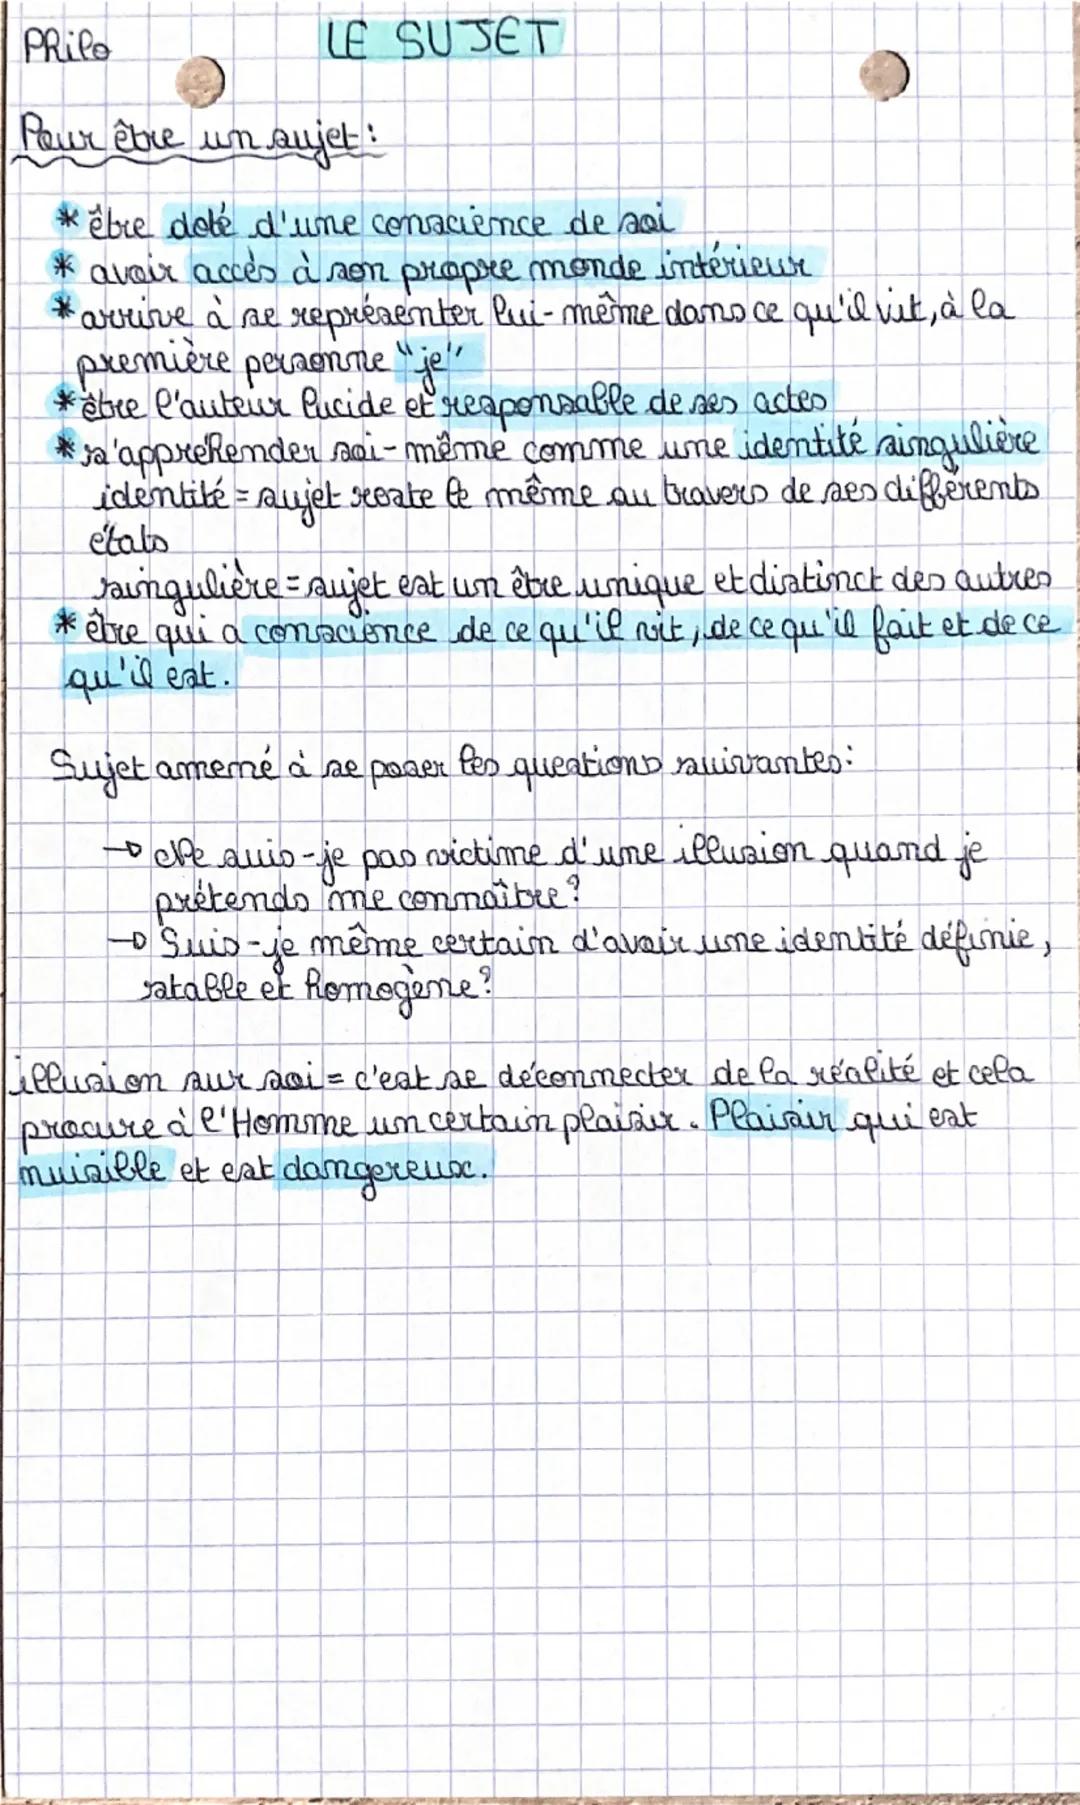 Philo
LE SUJET
Pour être un sujet :
* être doté d'une conscience de soi
* avoir accès à son propre monde intérieur
* arrive à se représenter lui-même dans ce qu'il vit, à la
première personne "je"
* être l'auteur lucide et responsable de ses actes
* s'appréhender soi-même comme une identité singulière
identité = sujet reste le même au travers de ses différents
états
singulière = sujet est un être unique et distinct des autres
* être qui a conscience de ce qu'il vit, de ce qu'il fait et de ce
qu'il est.
Sujet amené à se poser les questions suivantes :
→ Ne suis-je pas victime d'une illusion quand je
prétends me connaître ?
→ Suis-je même certain d'avoir une identité définie,
stable et homogène ?
illusion sur soi = c'est se déconnecter de la réalité et cela
procure à l'Homme un certain plaisir. Plaisir qui est
nuisible et est dangereux.